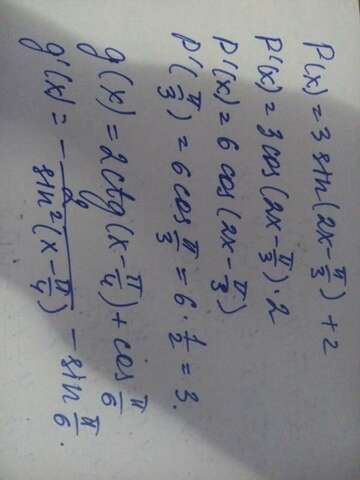 P(x) = 3 sin(2x - π/3) + 2
P'(x) = 3 cos(2x - π/3) · 2
P'(x) = 6 cos(2x - π/3)
P'(π/3) = 6 cos π/3 = 6 · 1/2 = 3.
g(x) = 2 ctg(x - π/4) + cos π/6
g'(x) = - 2/sin²(x - π/4) - sin π/6.